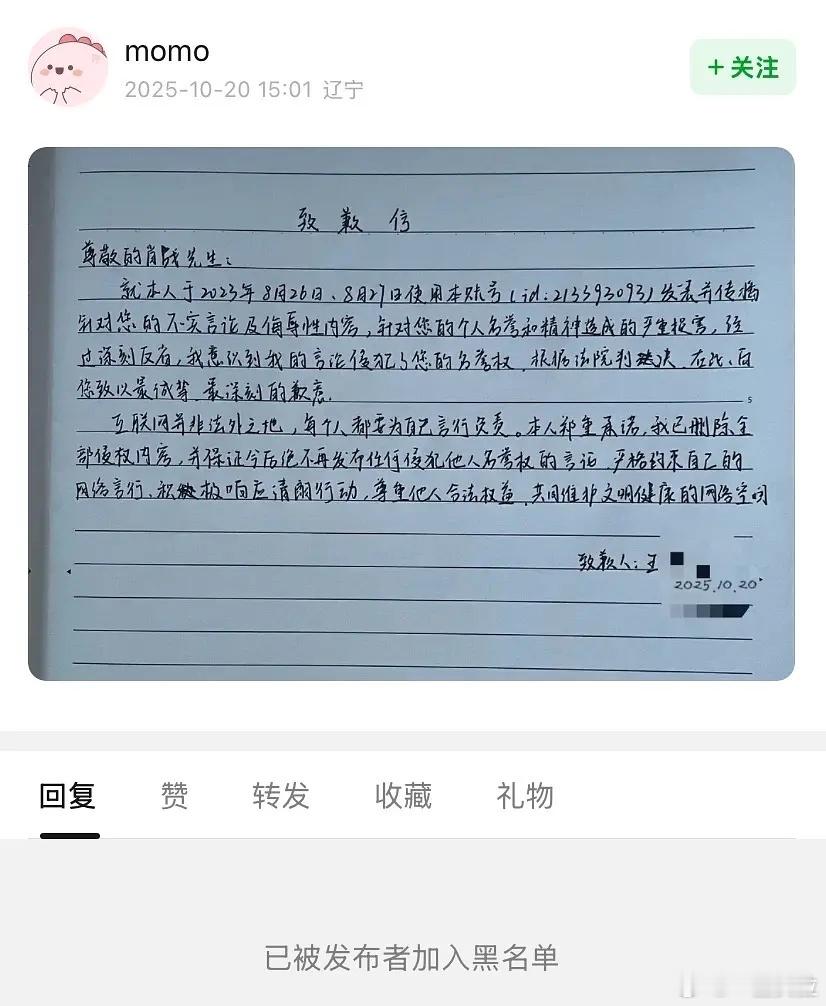 momo
2025-10-20 15:01 辽宁
+关注
致歉信
尊敬的肖战先生：
就本人于2023年8月26日、8月27日使用本账号(id:213393093)发表并传播
针对您的不实言论及侮辱性内容，针对您的个人名誉和精神造成的严重损害，经
过深刻反省，我意识到我的言论侵犯了您的名誉权，根据法院判决，在此，向
您致以最诚挚、最深刻的歉意。
互联网并非法外之地，每个人都要为自己言行负责。本人郑重承诺，我已删除全
部侵权内容，并保证今后绝不再发布任何侵犯他人名誉权的言论，严格约束自己的
网络言行、积极响应清朗行动，尊重他人合法权益，共同维护文明健康的网络空间
致歉人：王
2025.10.20
回复
赞
转发
收藏
礼物
已被发布者加入黑名单